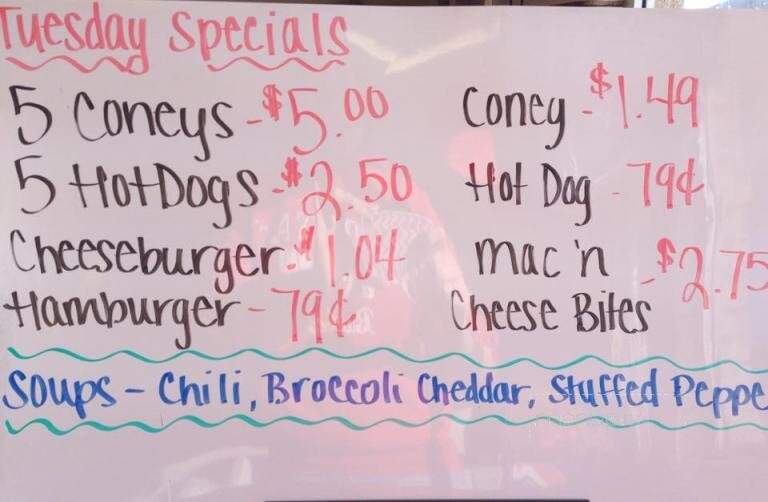 Tuesday Specials
5 Coneys - $5.00
5 HotDogs - $2.50
Cheeseburger - $1.04
Hamburger - 79¢
Coney - $1.49
Hot Dog - 79¢
Mac 'n
Cheese Bites - $2.75
Soups - Chili, Broccoli Cheddar, Stuffed Peppe